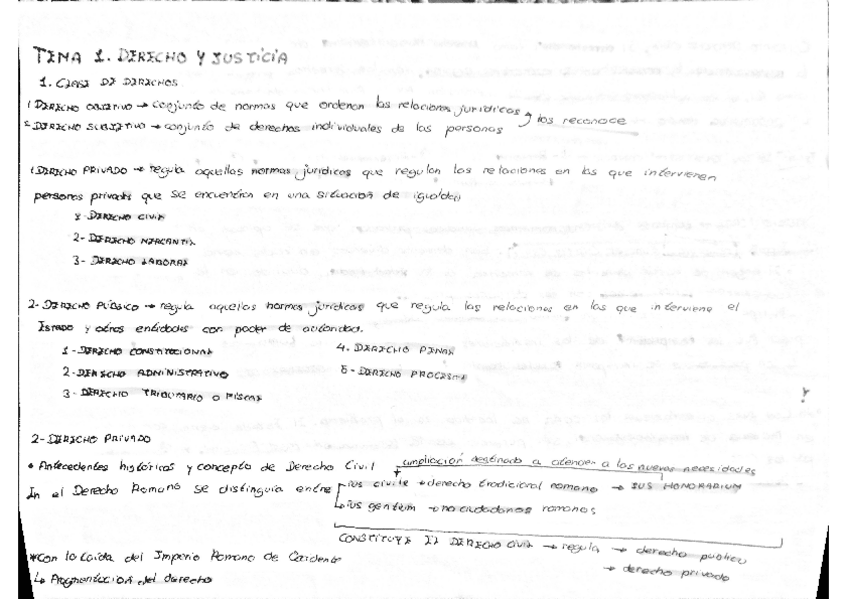 TEMA 1. DERECHO Y JUSTICIA
1. CLASE DE DERECHOS
1 DERECHO OBJETIVO → conjunto de normas que ordenan las relaciones jurídicas
2 DERECHO SUBJETIVO → conjunto de derechos individuales de las personas
los reconoce
1 DERECHO PRIVADO → regula aquellas normas jurídicas que regulan las relaciones en las que intervienen
personas privadas que se encuentran en una situación de igualdad
1- DERECHO CIVIL
2- DERECHO MERCANTIL
3- DERECHO LABORAL
2- DERECHO PÚBLICO → regula aquellas normas jurídicas que regula las relaciones en las que interviene el
Estado y otras entidades con poder de autoridad.
1- DERECHO CONSTITUCIONAL
2- DERECHO ADMINISTRATIVO
3- DERECHO TRIBUTARIO O FISCAL
4. DERECHO PENAL
5- DERECHO PROCESAL
2- DERECHO PRIVADO
• Antecedentes históricos y concepto de Derecho Civil
ampliación destinada a atender a las nuevas necesidades
In el Derecho Romano se distinguia entre
ius civile → derecho tradicional romano → IUS HONORARIUM
ius gentium → no ciudadanos romanos
CONSTITUYE EL DERECHO CIVIL → regula → derecho publico
→ derecho privado
* Con la caída del Imperio Romano de Occidente
↳ Fragmentación del derecho